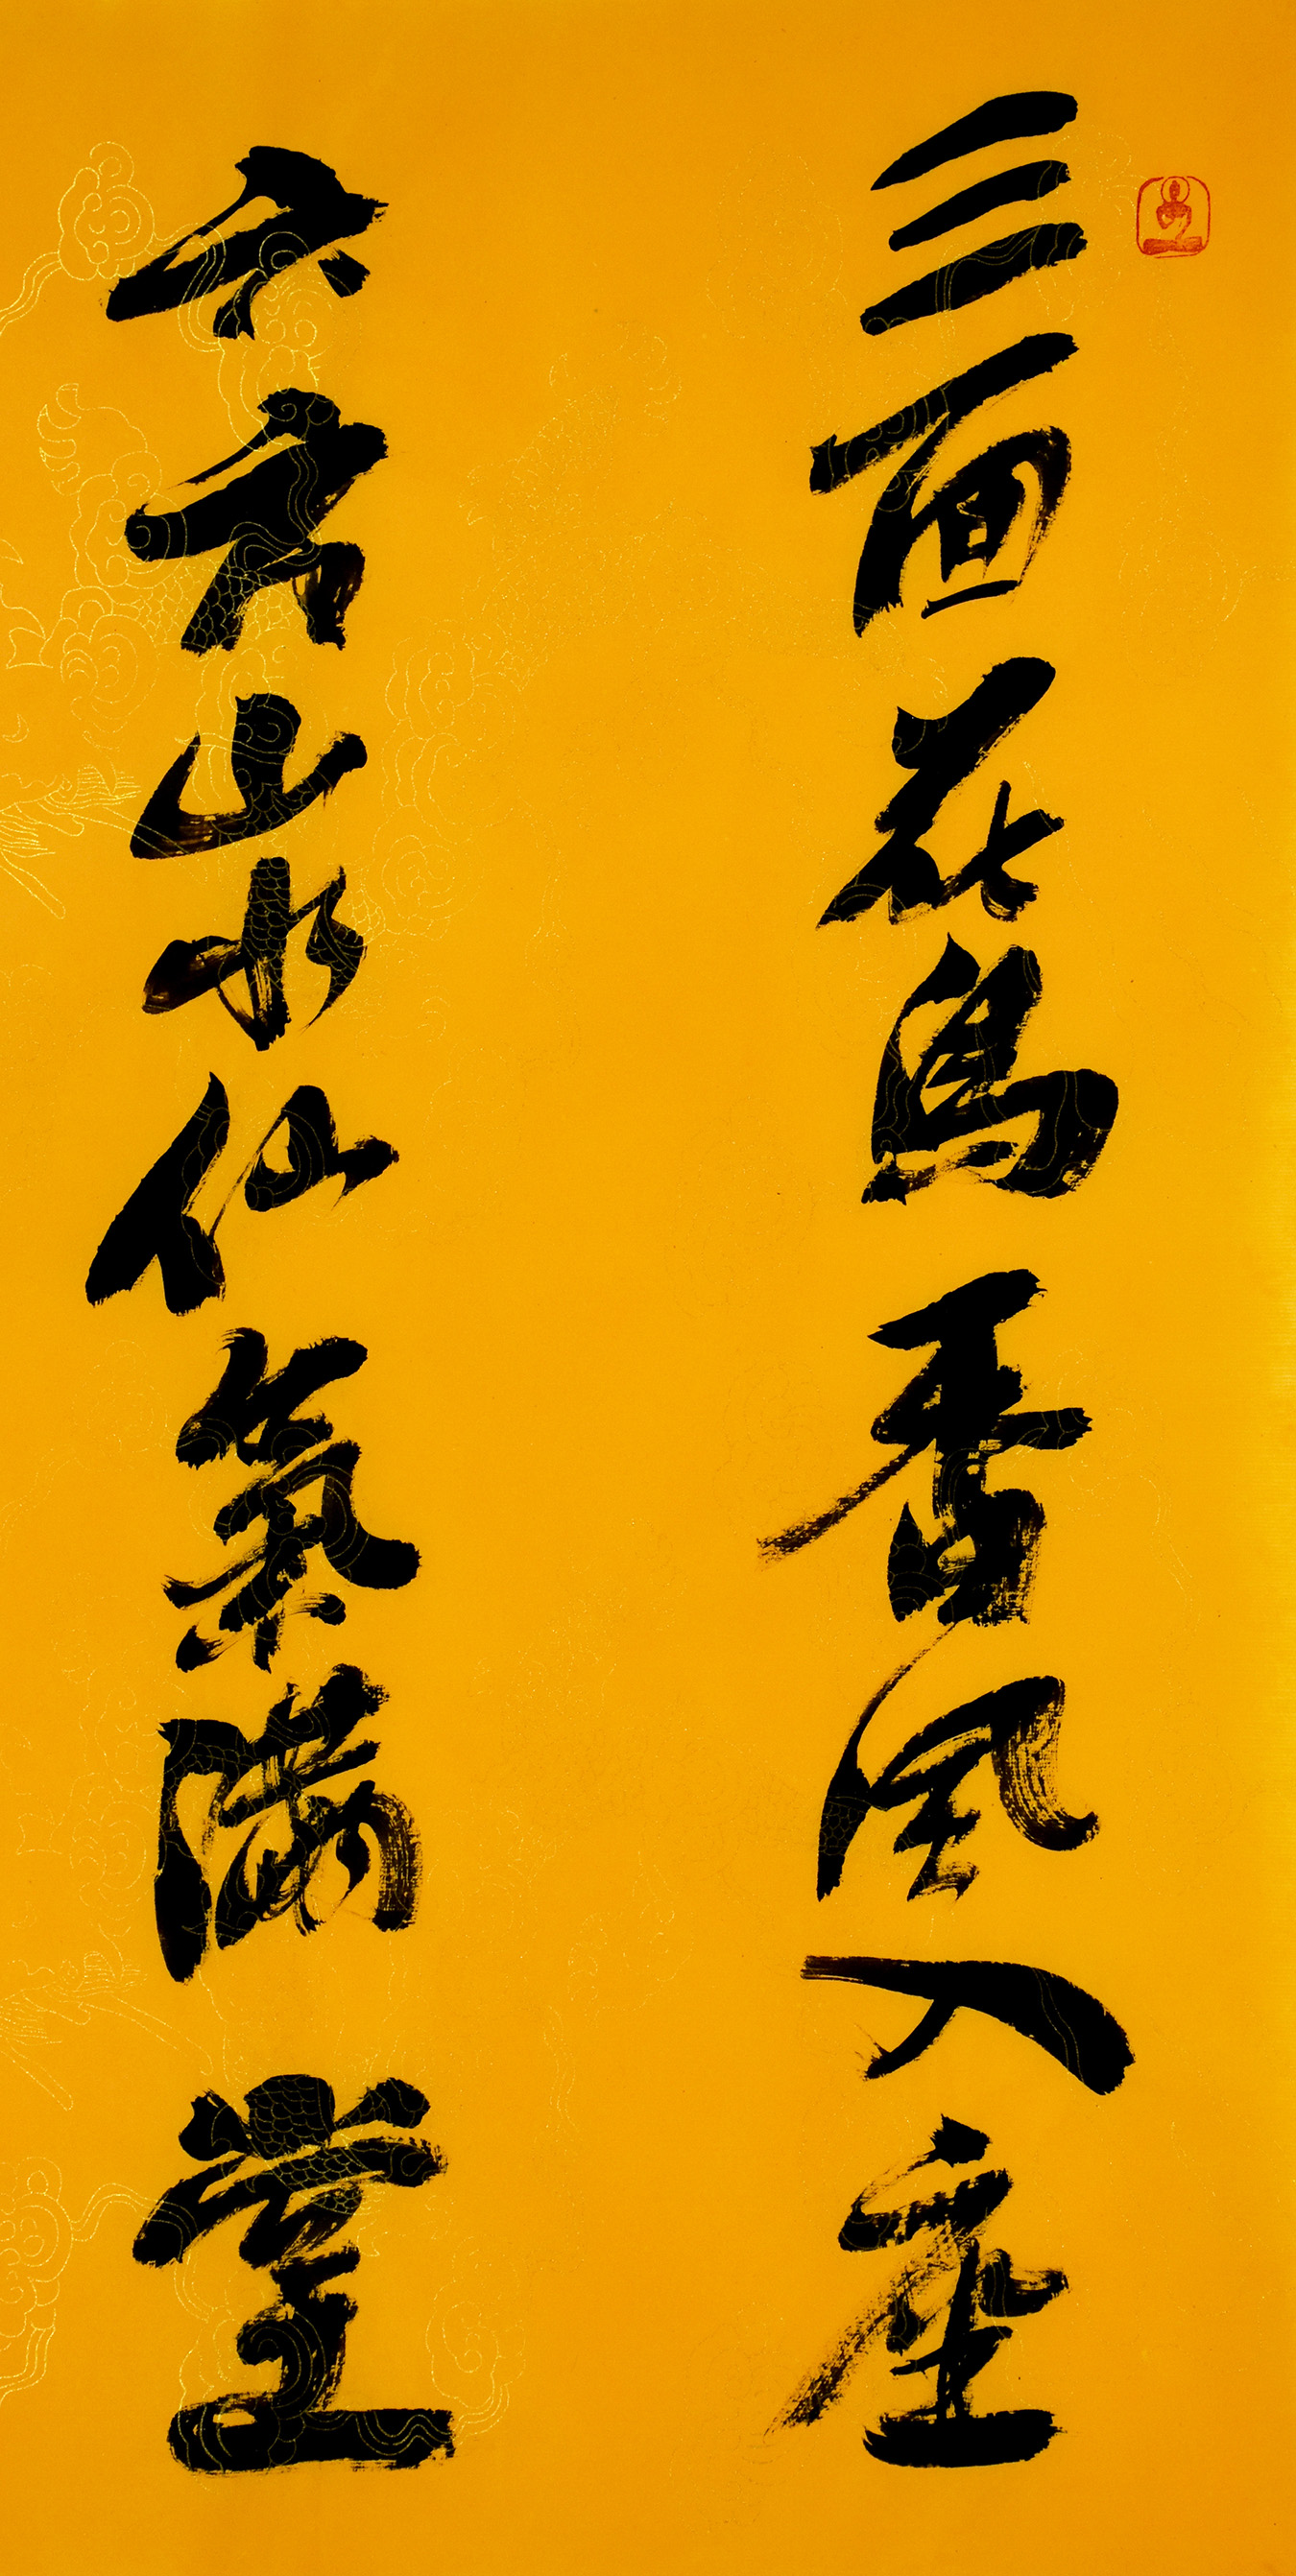 三面花鳥香風入座
六方山水仙氣滿堂